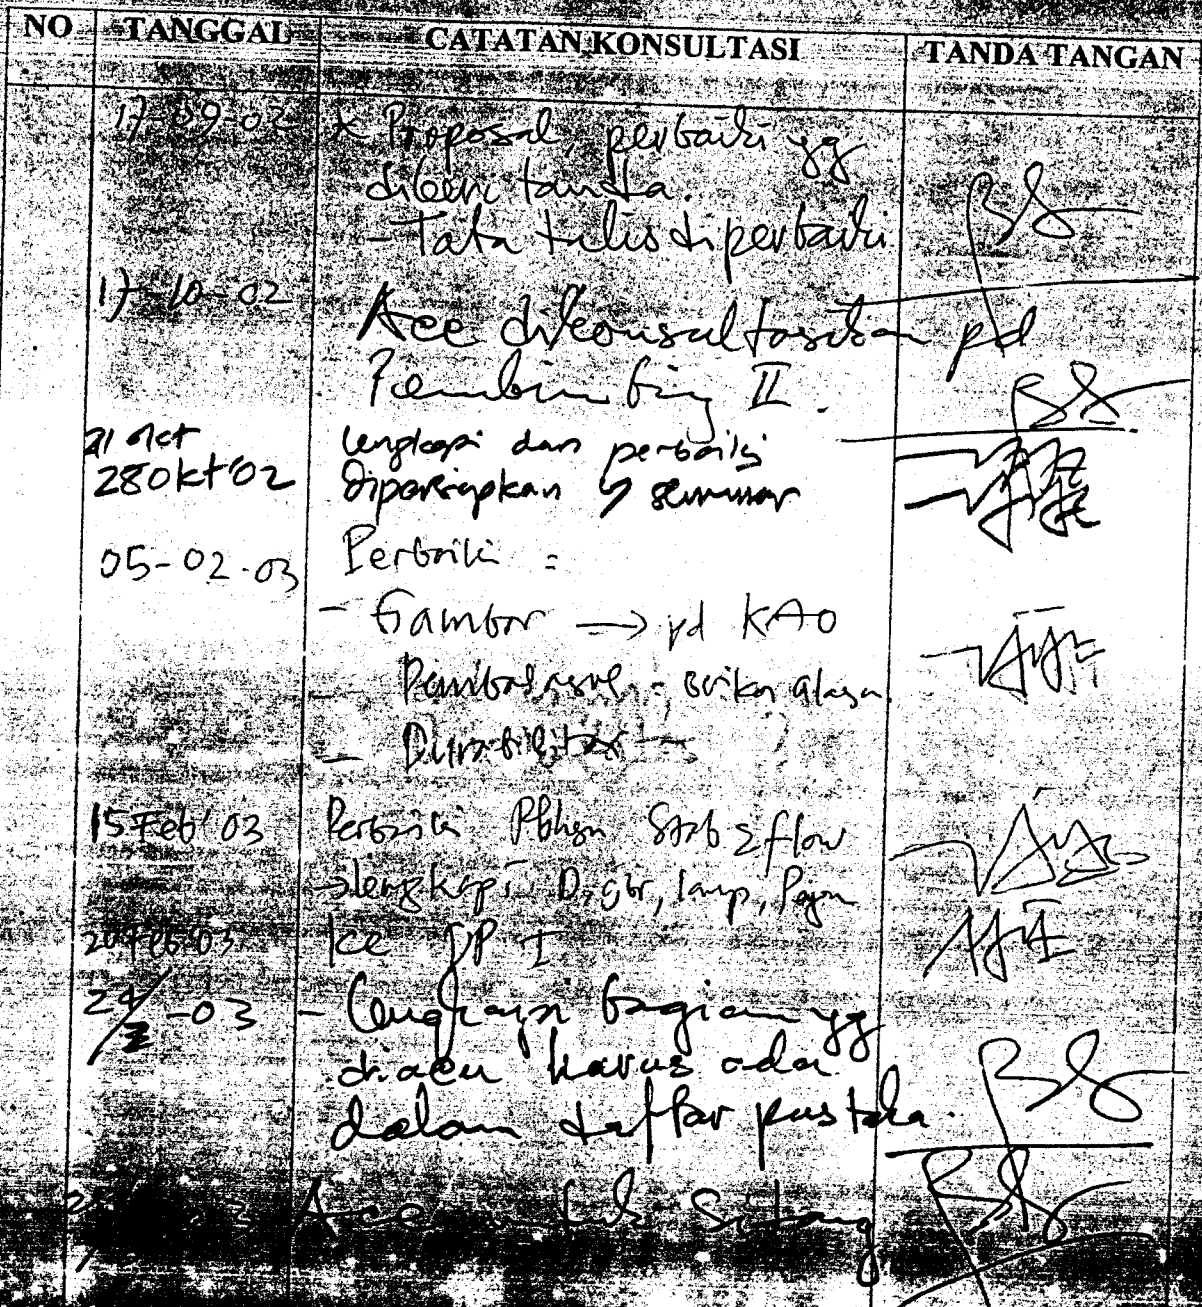 NO TANGGAL CATATAN KONSULTASI TANDA TANGAN
17-09-02 * Proposal, perbaiki yg
diberi tanda.
- Tata tulis diperbaiki
17-10-02 Acc dikonsultasikan pd
Pembimbing II.
21 Okt lengkapi dan perbaiki
28 Okt '02 dipersiapkan seminar
05-02-03 Perbaiki :
- Gambar → pd KAO
- Pembahasan - berikan alasan
- Durabilitas
15 Feb '03 Perbaiki Pbhsn Stab & flow
lengkapi D. gbr, lamp,
20 Feb 03 Acc DP I
24/2-03 - Lengkapi bagian yg
diacu harus ada
dalam daftar pustaka.
Acc untuk Sidang